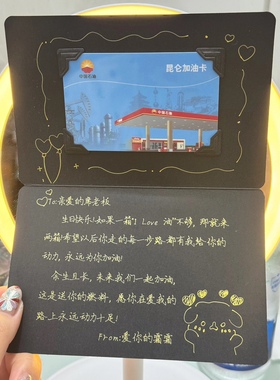 中国石油
昆仑加油卡
中国石油
To:亲爱的席老板
生日快乐!如果一箱"I Love 油"不够,那就来
两箱!希望以后你走的每一步路都有我给你的
动力,永远为你加油!
余生且长,未来我们一起加油,
这是送你的燃料,愿你在爱我的
路上永远动力十足!
From:爱你的霜霜